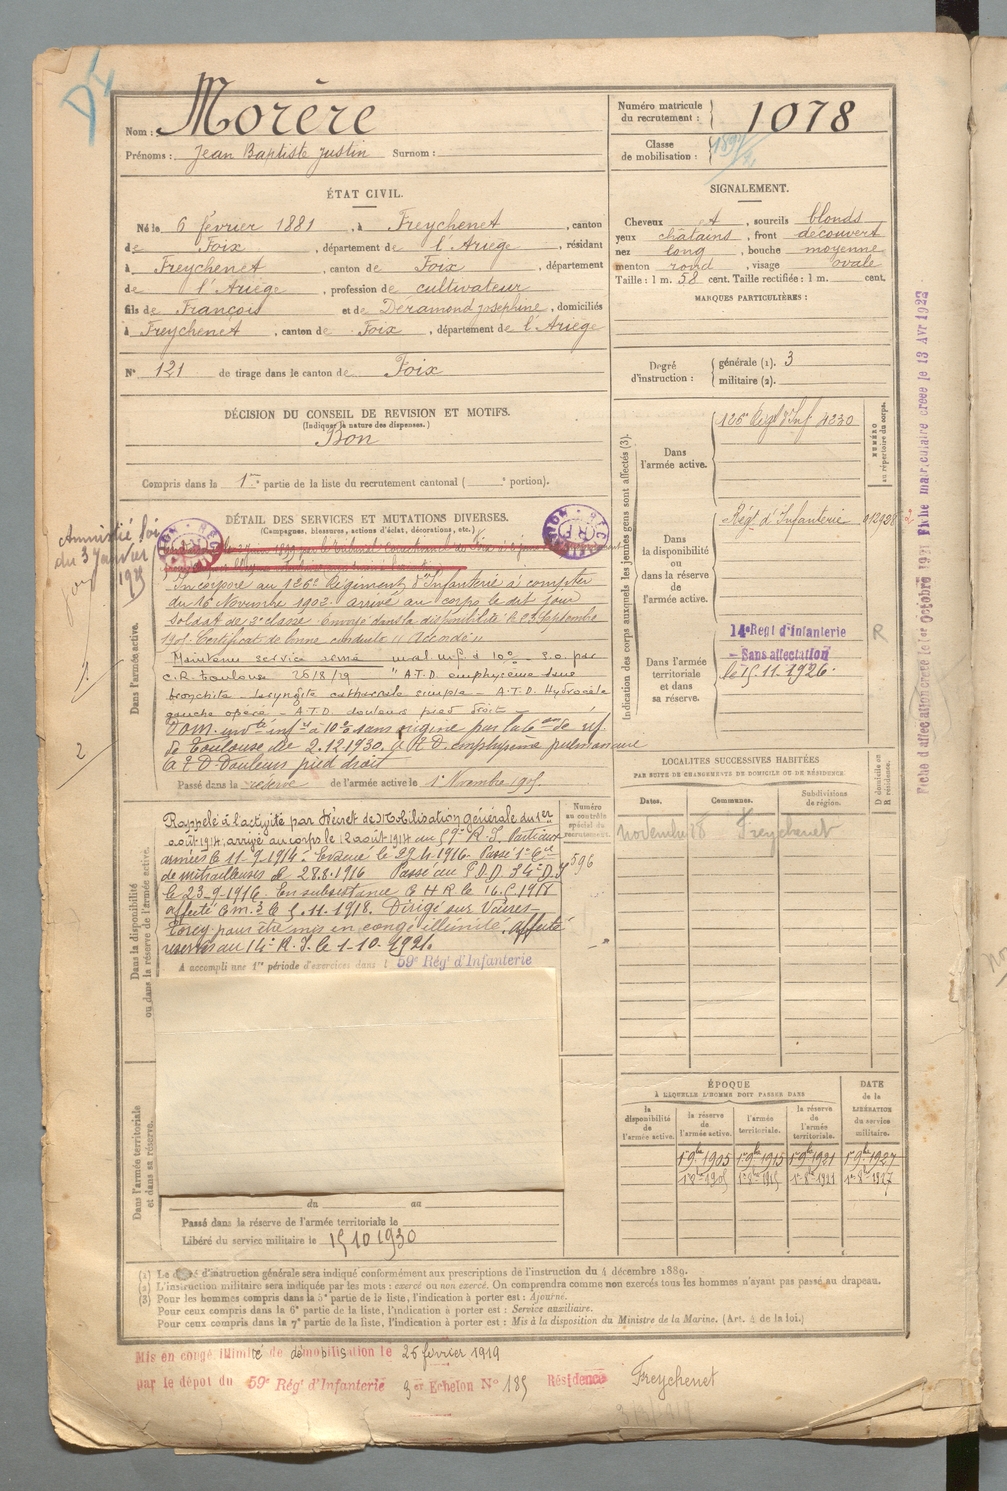 Nom : Morère
Prénoms : Jean Baptiste Justin Surnom :
Numéro matricule du recrutement : 1078
Classe de mobilisation :
ÉTAT CIVIL.
Né le 6 février 1881, à Freychenet, canton
de Foix, département de l'Ariège, résidant
à Freychenet, canton de Foix, département
de l'Ariège, profession de cultivateur
fils de François et de Déramond Joséphine, domiciliés
à Freychenet, canton de Foix, département de l'Ariège
N° 121 de tirage dans le canton de Foix
SIGNALEMENT.
Cheveux et, sourcils blonds
yeux châtains, front découvert
nez long, bouche moyenne
menton rond, visage ovale
Taille : 1 m. 58 cent. Taille rectifiée : 1 m. cent.
MARQUES PARTICULIÈRES :
Degré d'instruction : générale (1). 3
militaire (2).
DÉCISION DU CONSEIL DE REVISION ET MOTIFS.
(Indiquer la nature des dispenses.)
Bon
Compris dans la 1re partie de la liste du recrutement cantonal ( portion).
DÉTAIL DES SERVICES ET MUTATIONS DIVERSES.
(Campagnes, blessures, actions d'éclat, décorations, etc.)
Amnistié loi
du 3 Janvier
1925
Dans l'armée active.
1
2
Incorporé au 126e Régiment d'Infanterie à compter
du 16 Novembre 1902. arrivé au corps le dit jour
soldat de 2e classe. envoyé dans la disponibilité le 23 Septembre
1905. Certificat de bonne conduite "Accordé"
Maintenu service armé inval inf à 10% S.O. par
C.R. Toulouse 26/8/19 "A.T.D. emphysème sans
bronchite - laryngite catharrale simple - A.T.D. Hydrocèle
gauche opéré - A.T.D. douleurs pied droit -
de Toulouse du 2.12.1930. emphysème pulmonaire
Douleurs pied droit
Passé dans la réserve de l'armée active le 1er Novembre 1905.
Dans la disponibilité
ou dans la réserve de l'armée active.
Rappelé à l'activité par Décret de Mobilisation générale du 1er
août 1914, arrivé au corps le 12 août 1914 au 59e R.I. Parti aux
armées le 11-9-1914. Evacué le 29.4.1916. Passé 1e Cie
de mitrailleuses le 28.8.1916 Passé au P.D.D. 34e D.I
le 23-9-1916. En subsistance C H R le 16.5 1918
affecté C.M.3 le 5.11.1918. Dirigé sur Vaires-
Torcy pour être mis en congé illimité. affecté
réserves au 14e R.I. le 1-10-1921.
A accompli une 1re période d'exercices dans l 59e Rég' d'Infanterie
Numéro
au contrôle
spécial du
recrutement.
596
Dans l'armée territoriale
et dans sa réserve.
du au
Passé dans la réserve de l'armée territoriale le
Libéré du service militaire le 15 10 1930
Indication des corps auxquels les jeunes gens sont affectés (3).
Dans l'armée active. 126e Régt d'Inf 4230
NUMÉRO
au répertoire du corps.
Dans la disponibilité ou dans la réserve de l'armée active. Régt d'Infanterie 012908
Dans l'armée territoriale et dans sa réserve.
14e Regt d'Infanterie R
- Sans affectation
le 15.11.1926.
LOCALITÉS SUCCESSIVES HABITÉES
PAR SUITE DE CHANGEMENTS DE DOMICILE OU DE RÉSIDENCE.
Dates. Communes. Subdivisions de région. D domicile ou R résidence.
novembre 28 Freychenet
ÉPOQUE
À LAQUELLE L'HOMME DOIT PASSER DANS
DATE de la LIBÉRATION du service militaire.
la disponibilité de l'armée active. la réserve de l'armée active. l'armée territoriale. la réserve de l'armée territoriale.
1er 9bre 1905 1er 9bre 1915 1er 9bre 1921 1er 9bre 1927
1er 8bre 1905 1er 8bre 1915 1er 8bre 1921 1er 8bre 1927
(1) Le degré d'instruction générale sera indiqué conformément aux prescriptions de l'instruction du 4 décembre 1889.
(2) L'instruction militaire sera indiquée par les mots : exercé ou non exercé. On comprendra comme non exercés tous les hommes n'ayant pas passé au drapeau.
(3) Pour les hommes compris dans la 5e partie de la liste, l'indication à porter est : Ajourné.
Pour ceux compris dans la 6e partie de la liste, l'indication à porter est : Service auxiliaire.
Pour ceux compris dans la 7e partie de la liste, l'indication à porter est : Mis à la disposition du Ministre de la Marine. (Art. 4 de la loi.)
Mis en congé illimité de démobilisation le 26 février 1919
par le dépôt du 59e Rég' d'Infanterie 3er Echelon N° 185 Résidence Freychenet
Fiche d'affectation créée le 1er Octobre 1921 Fiche matriculaire créée le 13 Avr 1922